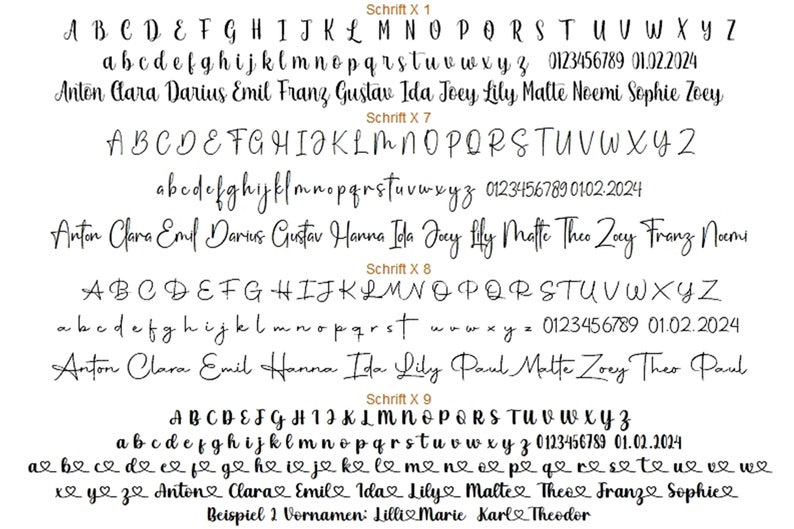 Schrift X 1
A B C D E F G H I J K L M N O P Q R S T U V W X Y Z
a b c d e f g h i j k l m n o p q r s t u v w x y z 0123456789 01.02.2024
Anton Clara Darius Emil Franz Gustav Ida Joey Lily Malte Noemi Sophie Zoey
Schrift X 7
A B C D E F G H I J K L M N O P Q R S T U V W X Y Z
a b c d e f g h i j k l m n o p q r s t u v w x y z 0123456789 01.02.2024
Anton Clara Emil Darius Gustav Hanna Ida Joey Lily Malte Theo Zoey Franz Noemi
Schrift X 8
A B C D E F G H I J K L M N O P Q R S T U V W X Y Z
a b c d e f g h i j k l m n o p q r s t u v w x y z 0123456789 01.02.2024
Anton Clara Emil Hanna Ida Lily Paul Malte Zoey Theo Paul
Schrift X 9
A B C D E F G H I J K L M N O P Q R S T U V W X Y Z
a b c d e f g h i j k l m n o p q r s t u v w x y z 0123456789 01.02.2024
a♡ b♡ c♡ d♡ e♡ f♡ g♡ h♡ i♡ j♡ k♡ l♡ m♡ n♡ o♡ p♡ q♡ r♡ s♡ t♡ u♡ v♡ w♡
x♡ y♡ z♡ Anton♡ Clara♡ Emil♡ Ida♡ Lily♡ Malte♡ Theo♡ Franz♡ Sophie♡
Beispiel 2 Vornamen: Lilli♡Marie Karl♡Theodor